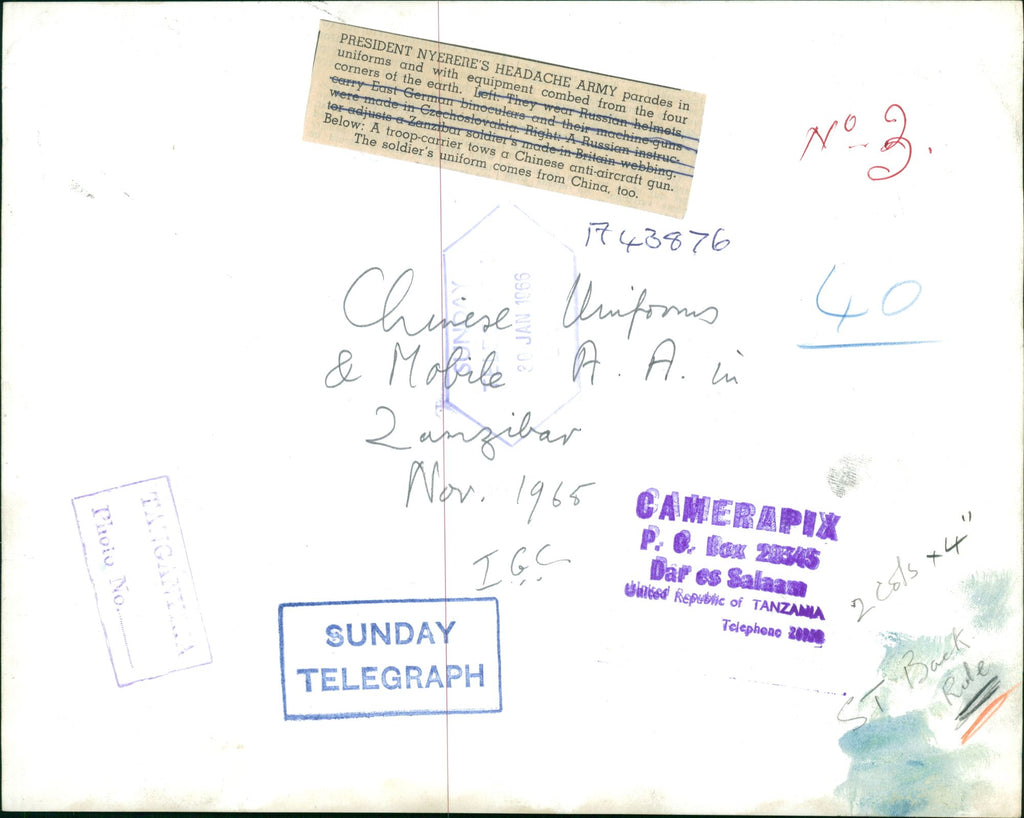 PRESIDENT NYERERE'S HEADACHE ARMY parades in
uniforms and with equipment combed from the four
corners of the earth. Left: They wear Russian helmets,
carry East German binoculars and their machine-guns
were made in Czechoslovakia. Right: A Russian instruc-
tor adjusts a Zanzibar soldier's made-in-Britain webbing.
Below: A troop-carrier tows a Chinese anti-aircraft gun.
The soldier's uniform comes from China, too.
Nº 3.
A43876
40
SUNDAY
20 JAN 1966
Chinese Uniforms
& Mobile A.A. in
Zanzibar
Nov. 1965
IGC
TANGANYIKA
Photo No.
CAMERAPIX
P. O. Box
Dar es Salaam
United Republic of TANZANIA
Telephone
2 cols x 4"
ST Back
Rule
SUNDAY
TELEGRAPH